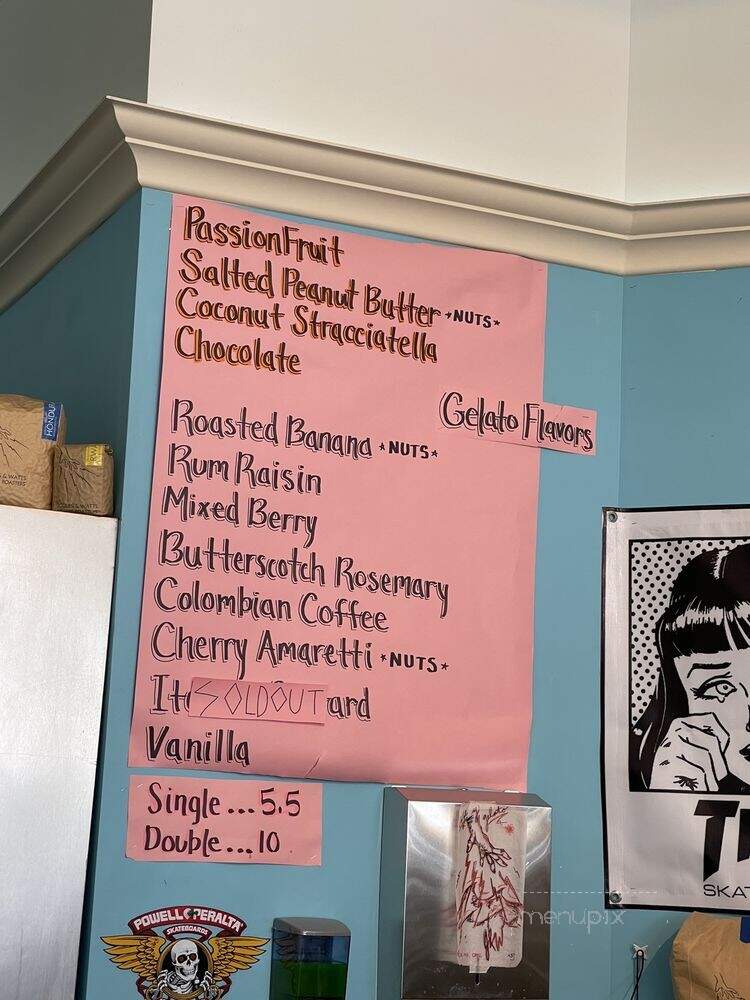 PassionFruit
Salted Peanut Butter *NUTS*
Coconut Stracciatella
Chocolate
Gelato Flavors
Roasted Banana *NUTS*
Rum Raisin
Mixed Berry
Butterscotch Rosemary
Colombian Coffee
Cherry Amaretti *NUTS*
SOLD OUT
Vanilla
Single ... 5.5
Double ... 10
POWELL PERALTA
SKATEBOARDS
menupix